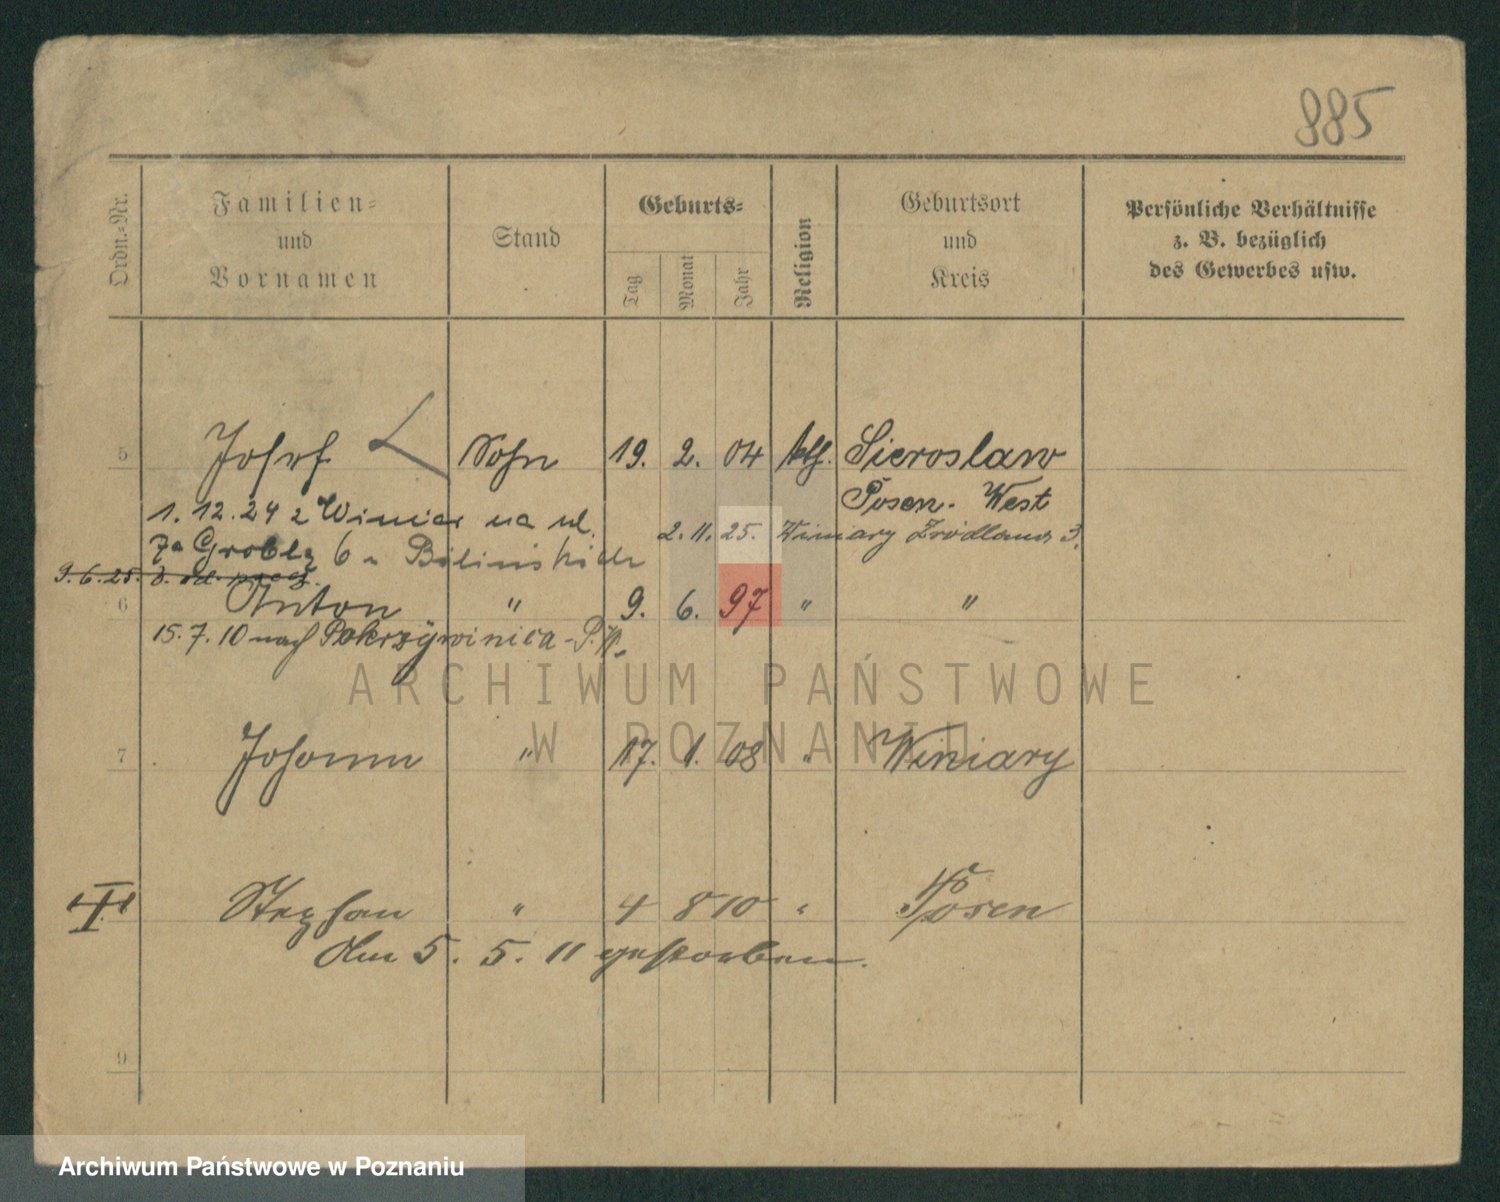 885
Ordn.-Nr.
Familien- und Vornamen
Stand
Geburts-
Tag
Monat
Jahr
Religion
Geburtsort und Kreis
Persönliche Verhältnisse z. B. bezüglich des Gewerbes usw.
5 Josef Sohn 19. 2. 04 kth. Sieroslaw
Posen-West
1. 12. 24 z Winiar na ul.
2. 11. 25. Winiary Źródlana 3.
Za Groblą 6 u Bilińskich
9. 6. 25.
6 Anton " 9. 6. 97 " "
15. 7. 10 nach Pokrzywnica - P. W.
ARCHIWUM PAŃSTWOWE
W POZNANIU
7 Johann " 17. 1. 08 " Winiary
Stephan " 4 8 10 " Posen
Am 5. 5. 11 gestorben.
9
Archiwum Państwowe w Poznaniu